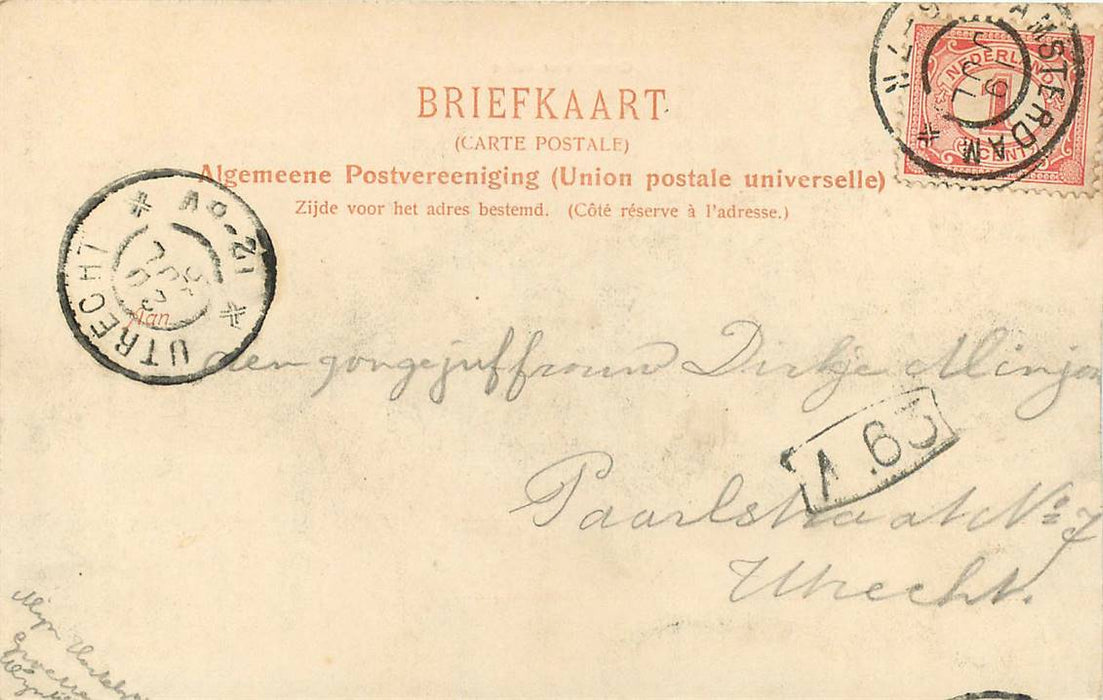 BRIEFKAART
(CARTE POSTALE)
Algemeene Postvereeniging (Union postale universelle)
Zijde voor het adres bestemd. (Côté réserve à l'adresse.)
AMSTERDAM
19 JUL
NEDERLAND
1
CENT
UTRECHT
12
Aan
den jongejuffrouw Dirkje
Paarlstraat No 7
Utrecht.
63